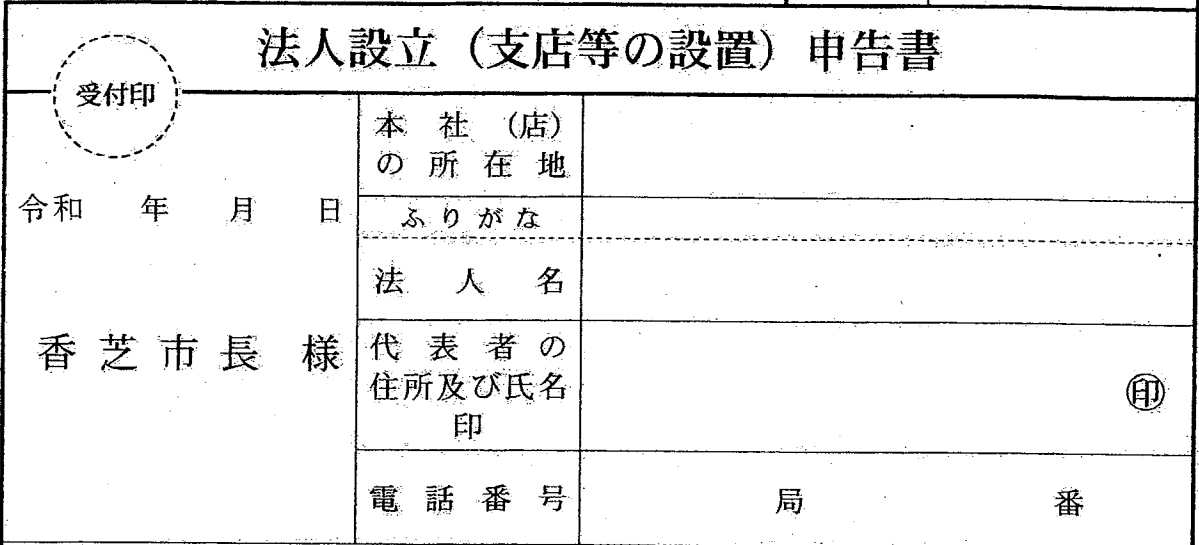 法人設立（支店等の設置）申告書
受付印
令和　年　月　日
香芝市長　様
本社（店）
の所在地
ふりがな
法人名
代表者の
住所及び氏名
印
㊞
電話番号
局　番